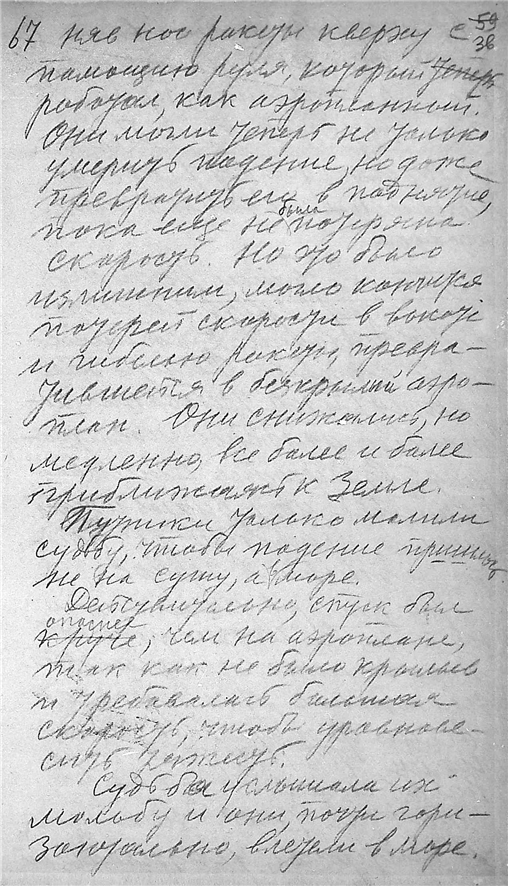 67 няв нос ракеты кверху с 59
36
помощию руля, который теперь
работал, как аэропланный.
Они могли теперь не только
умерить падение, но даже
превратить его в поднятие,
пока еще не была потеряна
скорость. Но это было
излишним, могло кончится
потерей скорости в высоте
и гибелью ракеты, превра-
тившейся в безкрылый аэро-
план. Они снижались, но
медленно, все более и более
приближаясь к Земле.
Путники только молили
судьбу, чтобы падение пришлось
не на сушу, а в море.
Действительно, спуск был
опаснее
круче, чем на аэроплане,
так как не было крыльев
и требовалась большая
скорость, чтобы уравнове-
сить тяжесть.
Судьба услышала их
мольбу и они, почти гори-
зонтально, влетели в море.